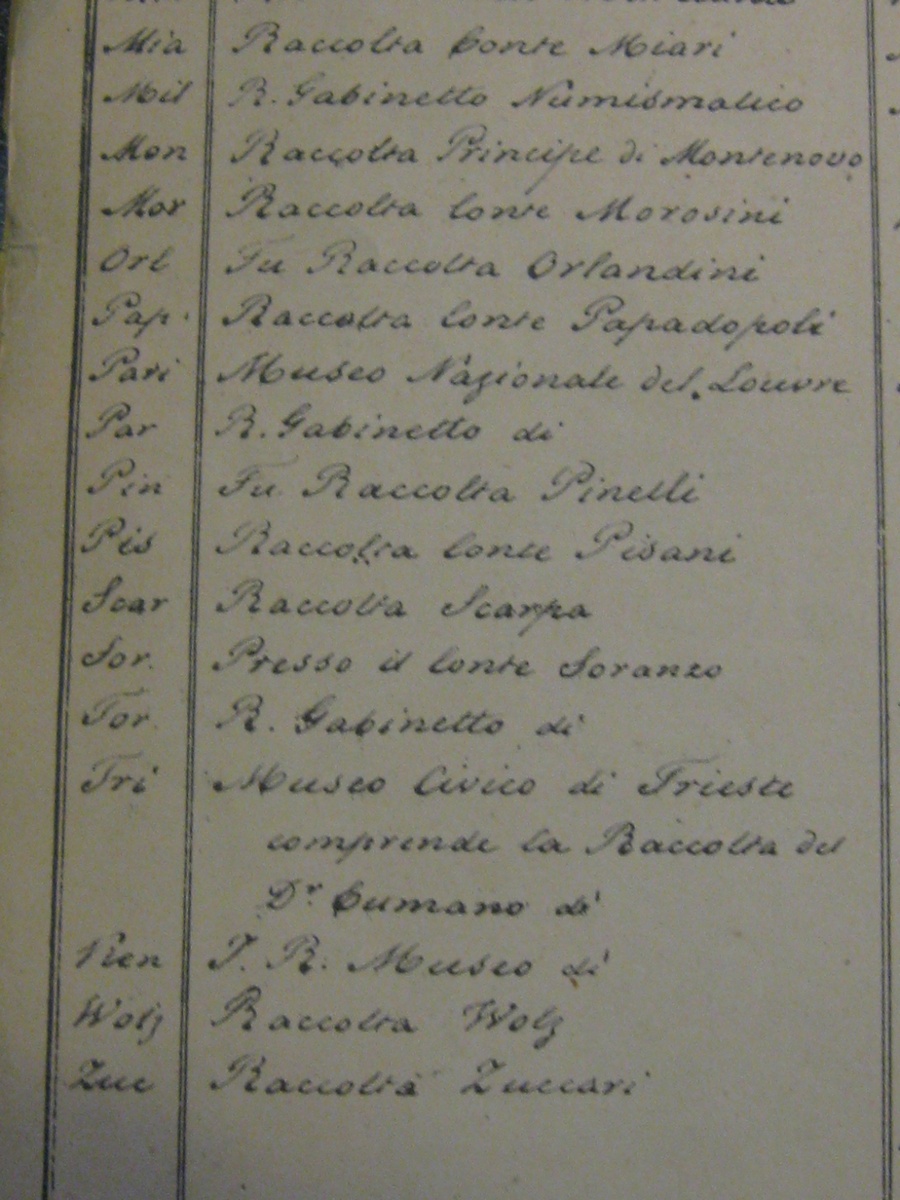 Mia Raccolta Conte Miari
Mil R. Gabinetto Numismatico
Mon Raccolta Principe di Montenovo
Mor Raccolta Conte Morosini
Orl Fu Raccolta Orlandini
Pap. Raccolta Conte Papadopoli
Pari Museo Nazionale del Louvre
Par R. Gabinetto di
Pin Fu Raccolta Pinelli
Pis Raccolta Conte Pisani
Scar Raccolta Scarpa
Sor. Presso il Conte Soranzo
Tor. R. Gabinetto di
Tri Museo Civico di Trieste
comprende la Raccolta del
Dr. Cumano di
I. R. Museo di
Wolz Raccolta Wolz
Zuc Raccolta Zuccari